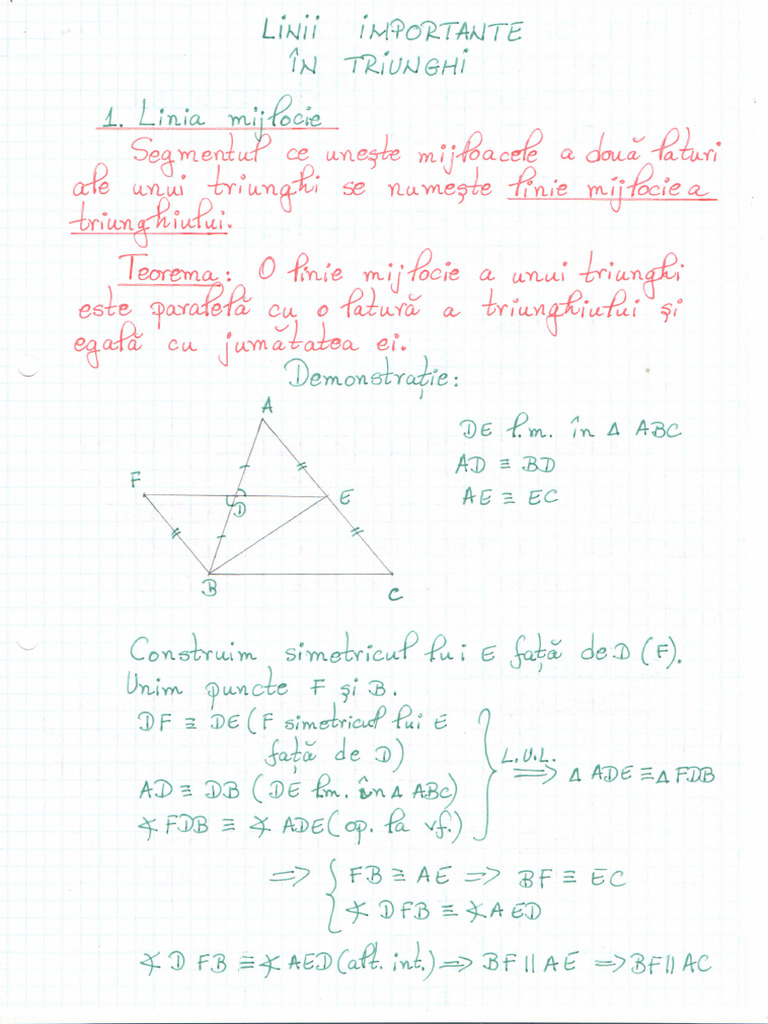 LINII IMPORTANTE
ÎN TRIUNGHI
1. Linia mijlocie
Segmentul ce unește mijloacele a două laturi
ale unui triunghi se numește linie mijlocie a
triunghiului.
Teorema: O linie mijlocie a unui triunghi
este paralelă cu o latură a triunghiului și
egală cu jumătatea ei.
Demonstrație:
A
DE l.m. în Δ ABC
AD ≡ BD
F
D
E
AE ≡ EC
B
C
Construim simetricul lui E față de D (F).
Unim puncte F și B.
DF ≡ DE (F simetricul lui E
față de D)
AD ≡ DB (DE l.m. în Δ ABC)
∢ FDB ≡ ∢ ADE (op. la vf.)
L.U.L. ⟹ Δ ADE ≡ Δ FDB
⟹ { FB ≡ AE ⟹ BF ≡ EC
∢ DFB ≡ ∢ AED
∢ DFB ≡ ∢ AED (alt. int.) ⟹ BF || AE ⟹ BF || AC